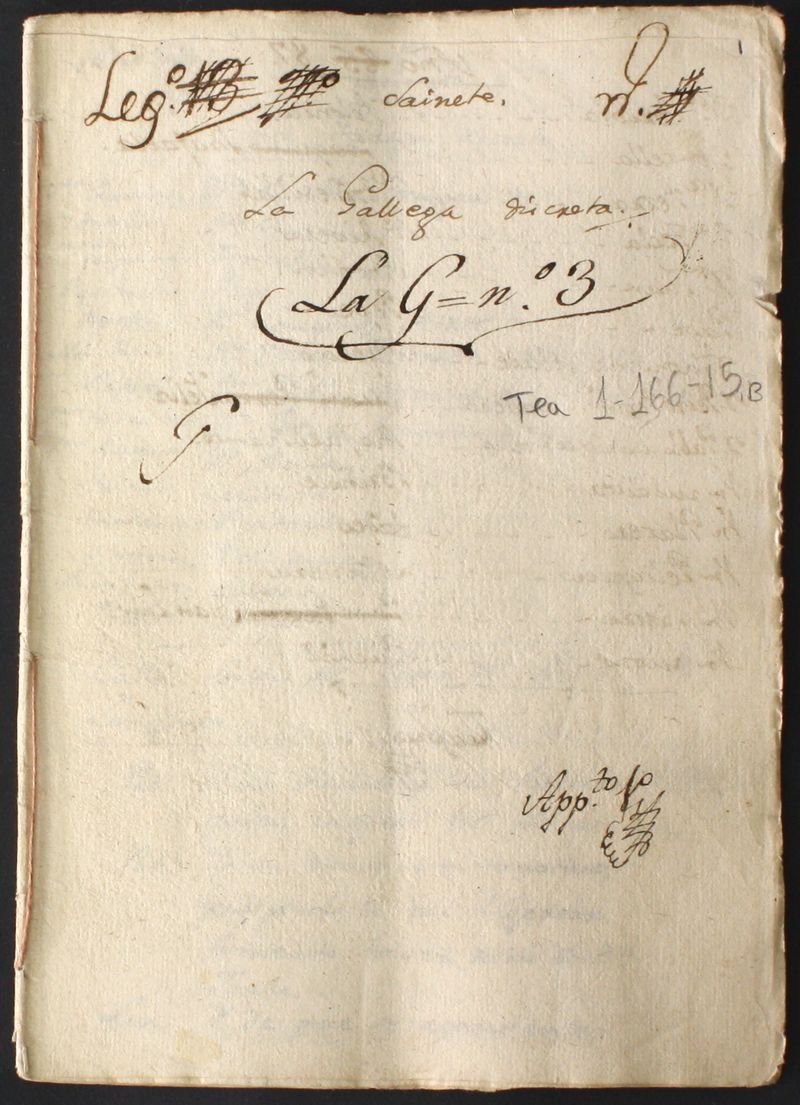 1
Leg.º Sainete. n.
La Gallega discreta.
La G= n.º 3
Tea 1-166-15, B
App.to